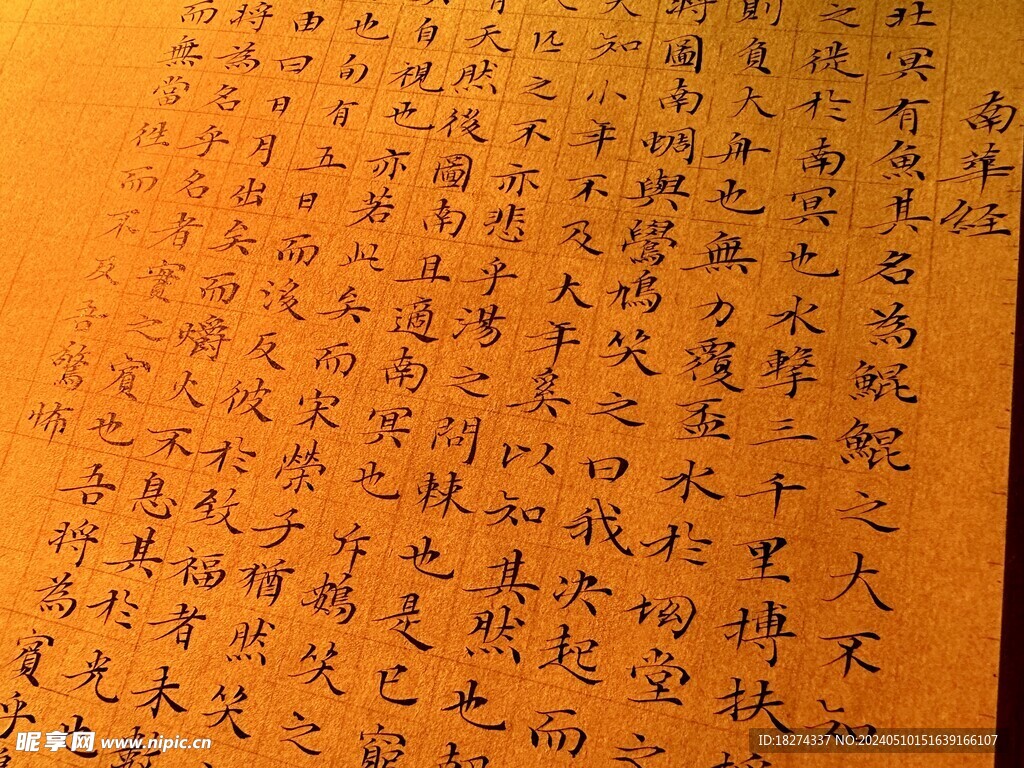 南華経
北冥有魚其名為鯤鯤之大不知
之徙於南冥也水擊三千里摶扶
則負大舟也無力覆盃水於坳堂之
將圖南蜩與鷽鳩笑之曰我決起而
知小年不及大年奚以知其然也
匹之不亦悲乎湯之問棘也是已窮
有天然後圖南且適南冥也斥鴳笑之
自視也亦若此矣而宋榮子猶然笑
也旬有五日而後反彼於致福者未
由曰日月出矣而爝火不息其於光也
將為名乎名者實之賓也吾將為賓乎
而無當往而不反吾驚怖
昵享网 www.nipic.cn
ID:18274337 NO:20240510151639166107